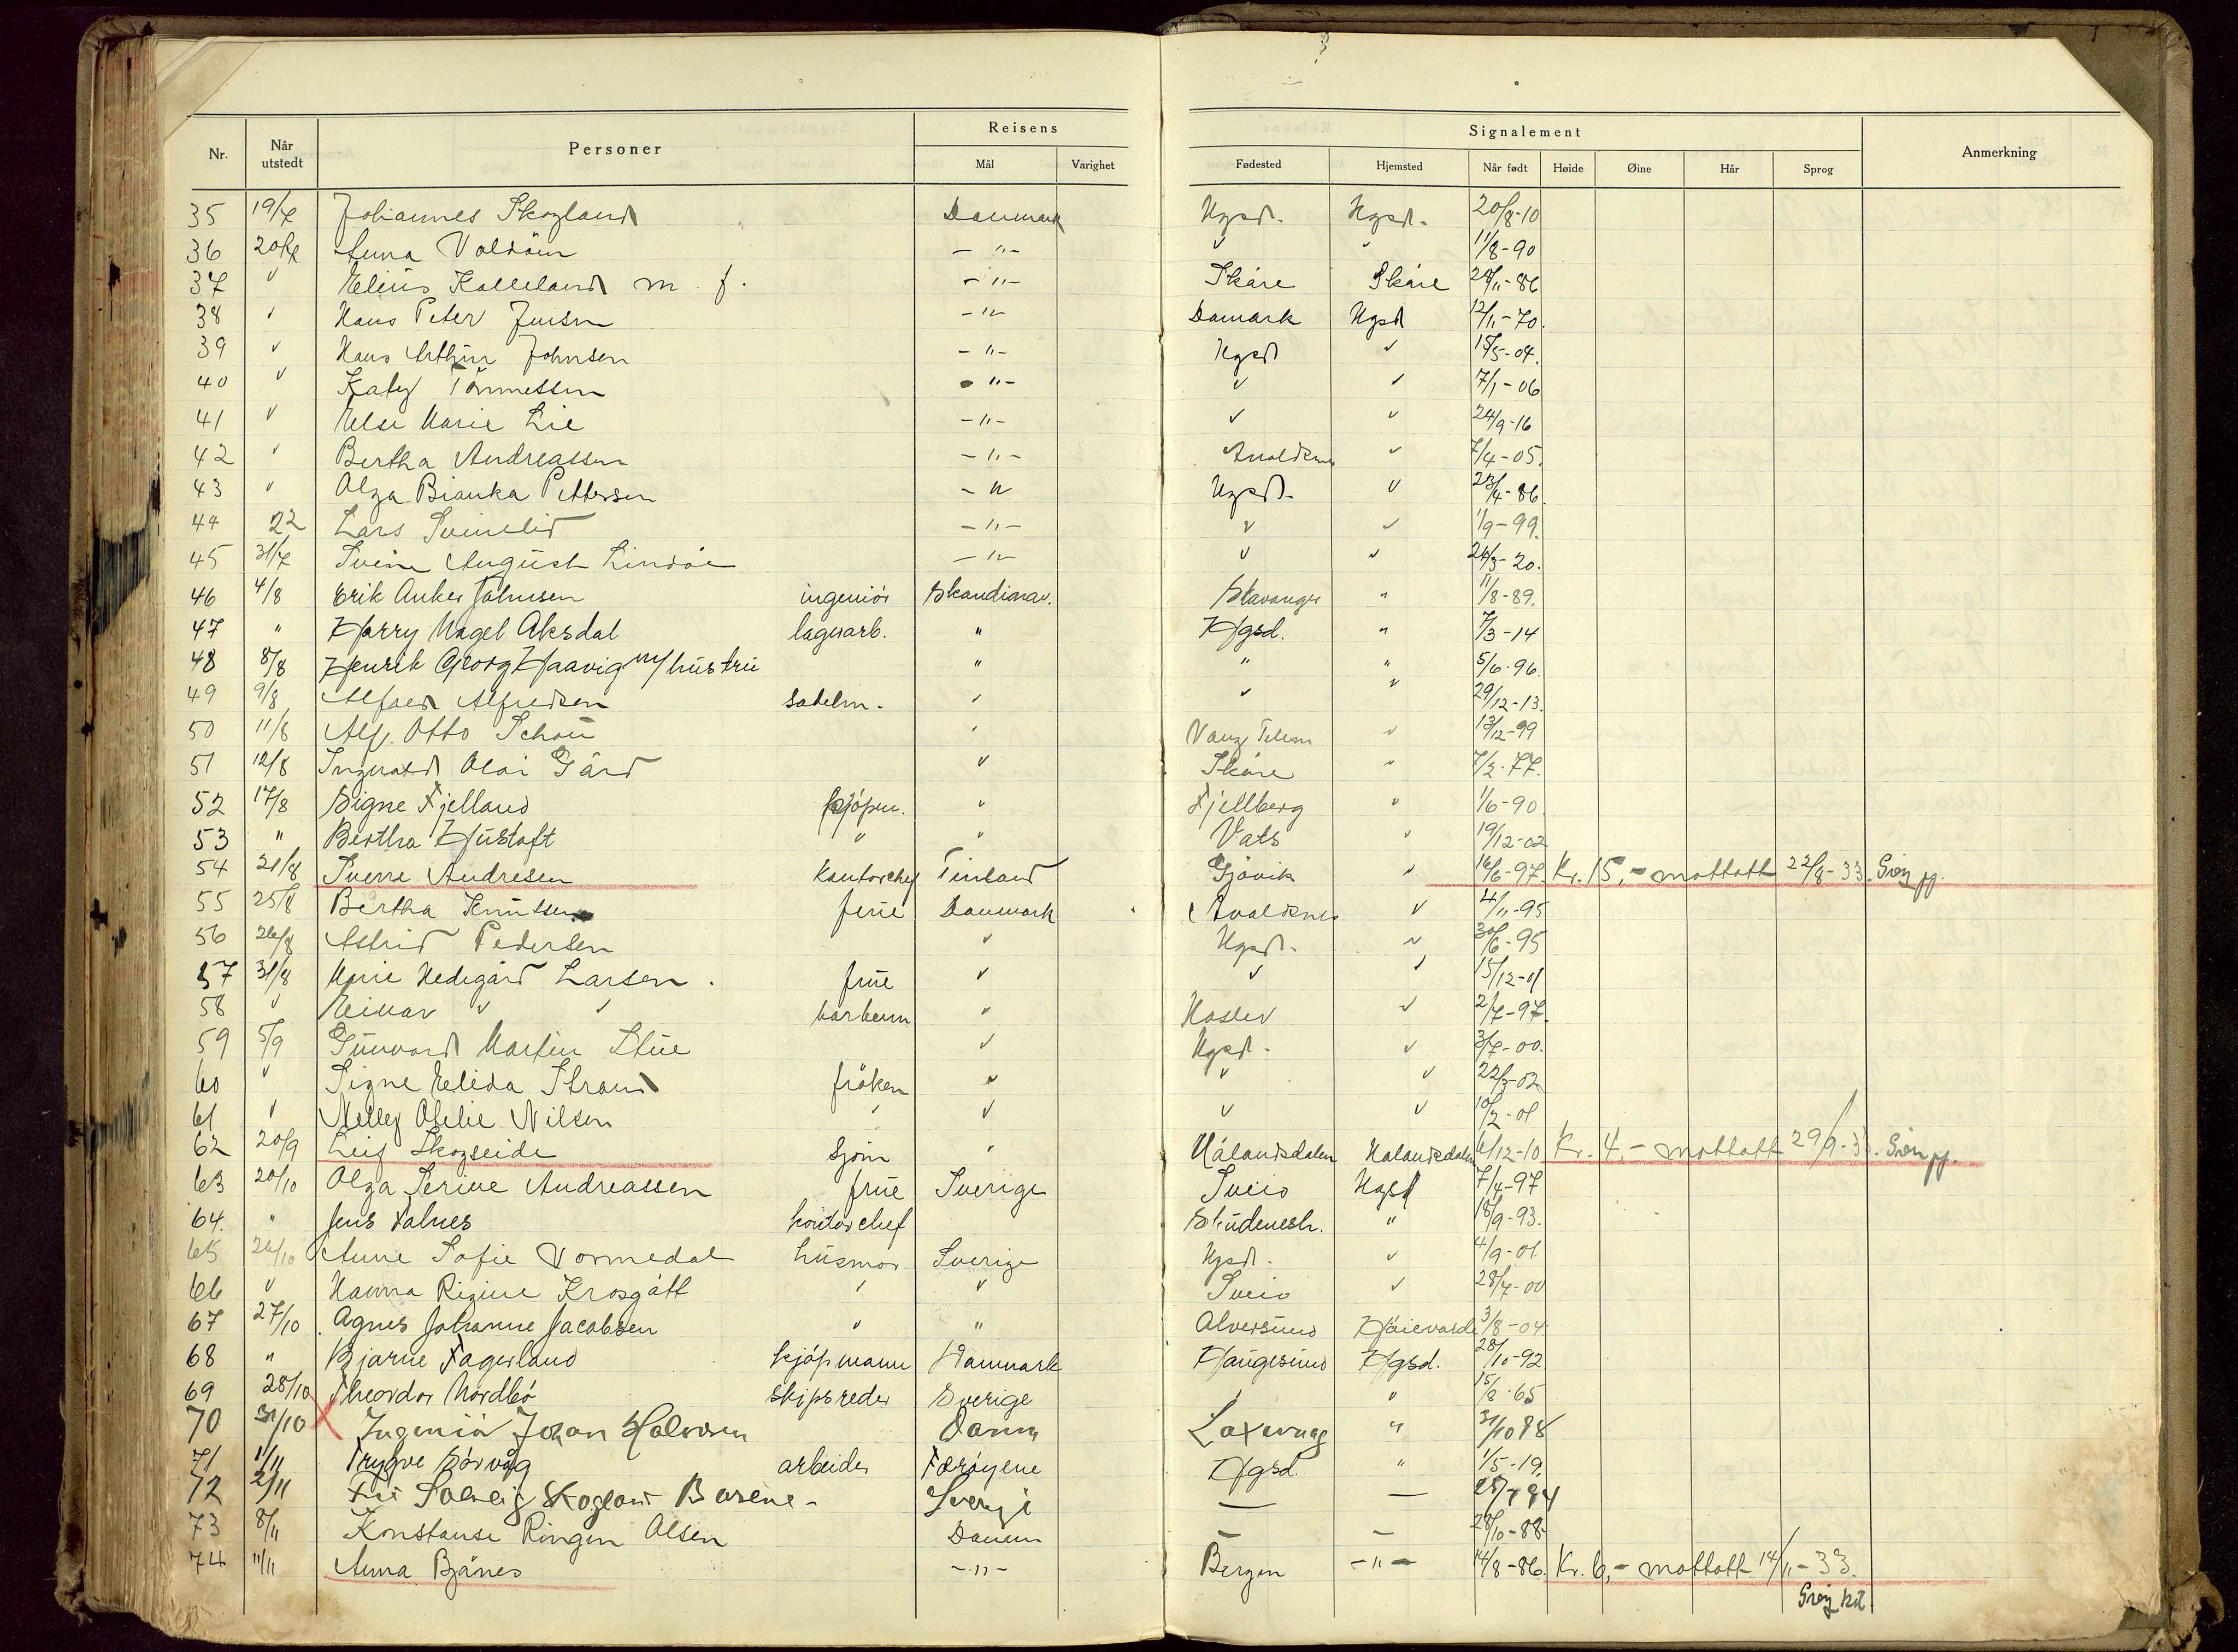 Nr. Når utstedt Personer Reisens Mål Varighet Signalement Fødested Hjemsted Når født Høide Øine Hår Sprog Anmerkning
35 19/7 Johannes Skogland Danmark Hgsd. Hgsd. 20/8-10
36 20/7 Anna Valdöin -"- " " 11/8-90
37 " Elius Kalleland m. f. -"- Skåre Skåre 28/11-86
38 " Hans Peter Jensen -"- Damark Hgsd 12/11-70.
39 " Hans Arthur Johnsen -"- Hgsd " 15/5-04.
40 " Katy Tönnessen -"- " " 7/1-06
41 " Else Marie Lie -"- " " 24/9-16
42 " Bertha Andreassen -"- Avaldsnes " 7/4-05.
43 " Olga Bianka Pettersen -"- Hgsd. " 23/4-86.
44 22 Lars Svinelid -"- " " 1/9-99.
45 31/7 Svein August Lindöe -"- " " 24/3-20.
46 4/8 Erik Anker Johnsen ingeniör Skandinav. Stavanger " 11/8-89.
47 " Harry Nagel Aksdal lagerarb. " Hgsd. " 7/3-14
48 8/8 Henrik Georg Haavig m/hustru " " " 5/6-96.
49 9/8 Alfred Alfredsen sadelm. " " " 29/12-13.
50 11/8 Alf. Otto Schou " Vang Telem " 13/12-99
51 12/8 Ingvald Olai Gård " Skåre " 7/2-77.
52 17/8 Signe Fjelland kjöpm. " Fjellberg " 1/6-90
53 " Bertha Hustoft " " Vats " 19/12-02
54 21/8 Sverre Andresen Kontorchef Finland Gjövik " 16/6-97. Kr. 15,- mottatt 22/8-33.
55 25/8 Bertha Knutsen frue Danmark Avaldsnes " 4/11-95
56 26/8 Astrid Pedersen " Hgsd. " 30/6-95
57 31/8 Marie Hedegård Larsen. frue " " " 15/12-01
58 " Einar " " " Haslev " 2/7-97.
59 5/9 Gunvard Martin Stue " Hgsd. " 3/7-00.
60 " Signe Elida Strand fröken " " " 22/3-02
61 " Nelly Ofelie Nilsen " " " " 10/2-01
62 20/9 Leif Skogseide Sjöm " Hålandsdalen Halandsdalen 6/12-10 Kr. 4,- mottatt 29/9-33.
63 20/10 Olga Serine Andreassen frue Sverige Sveio Hgsd 7/4-97
64. " Jens Falnes kontorchef Skudenesh. " 18/9-93.
65 26/10 Anne Sofie Vormedal husmor Sverige Hgsd. " 4/9-01.
66 " Hanna Rigine Krosgått " " Sveio " 28/7-00
67 27/10 Agnes Johanne Jacobsen " " Alversund Höievarde 3/8-04.
68 " Bjarne Fagerland kjöpmann Danmark Haugesund Hgsd. 28/10-92
69 28/10 Theordor Nordbö skipsreder Sverige " 15/8-65
70 31/10 Ingeniör Johan Halvorsen Danm Laxevaag " 31/10 88
71 1/11 Trygve Sörvåg arbeider Færöyene Hgsd. " 1/5-19.
72 2/11 Fru Solveig Skogland Barene- Sverige — — 25/7 94
73 8/11 Konstanse Ringen Olsen Danm — — 28/10-88-
74 11/11 Anna Bjånes -"- Bergen -"- 14/8-86. Kr. 6,- mottatt 14/11-33.